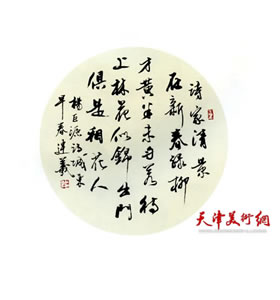 詩家清景
在新春綠柳
才黃半未勻若待
上林花似錦出門
俱是看花人
楊巨源詩城東
早春建義
天津美術網